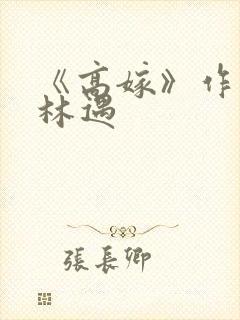 《高嫁》作
林遇
張長卿